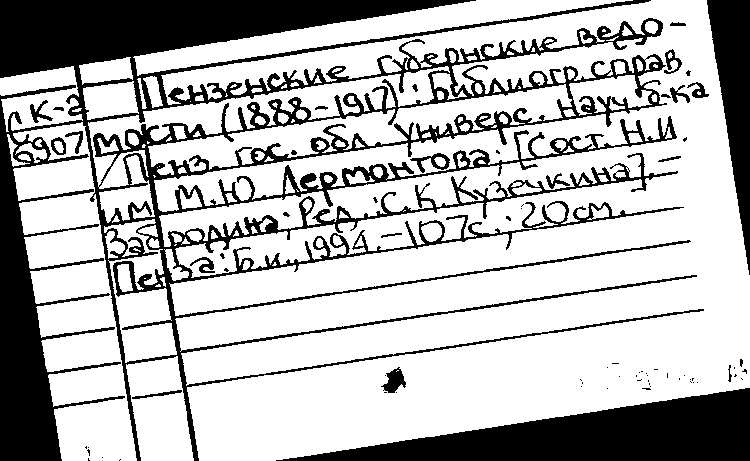 СК-2
6907
Пензенские губернские ведо-
мости (1888-1917) : Библиогр. справ.
/ Пенз. гос. обл. универс. науч. б-ка
им. М.Ю. Лермонтова; [Сост. Н.И.
Забродина; Ред.: С.К. Кузечкина]. –
Пенза : Б.и., 1994. – 107с.; 20см.